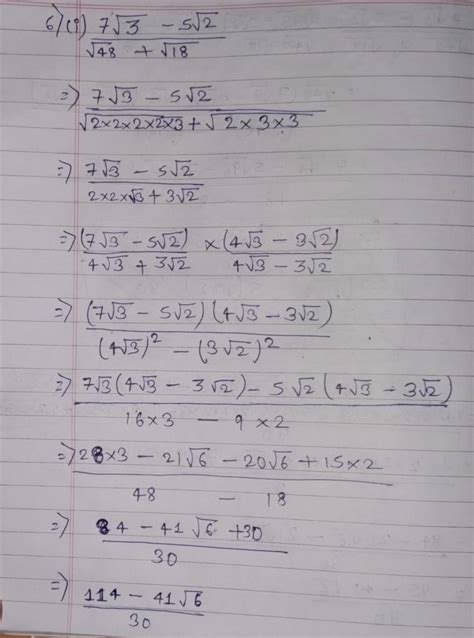 6/(i) 7√3 - 5√2
√48 + √18
=> 7√3 - 5√2
√2×2×2×2×3 + √2×3×3
=> 7√3 - 5√2
2×2×√3 + 3√2
=> (7√3 - 5√2) × (4√3 - 3√2)
4√3 + 3√2 4√3 - 3√2
=> (7√3 - 5√2)(4√3 - 3√2)
(4√3)² - (3√2)²
=> 7√3(4√3 - 3√2) - 5√2(4√3 - 3√2)
16×3 - 9×2
=> 28×3 - 21√6 - 20√6 + 15×2
48 - 18
=> 84 - 41√6 + 30
30
=> 114 - 41√6
30